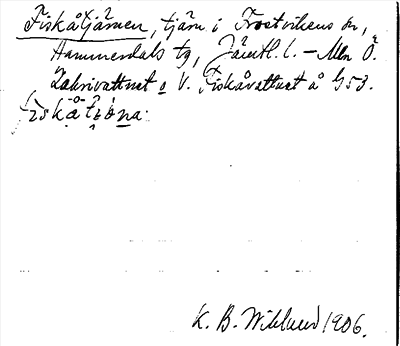 Fiskåtjärnen, tjärn i Frostvikens sn,
Hammerdals tg, Jämtl. l. – Mln Ö.
Lakavattnet o V. Fiskåvattnet å G 53.
K. B. Wiklund 1906.